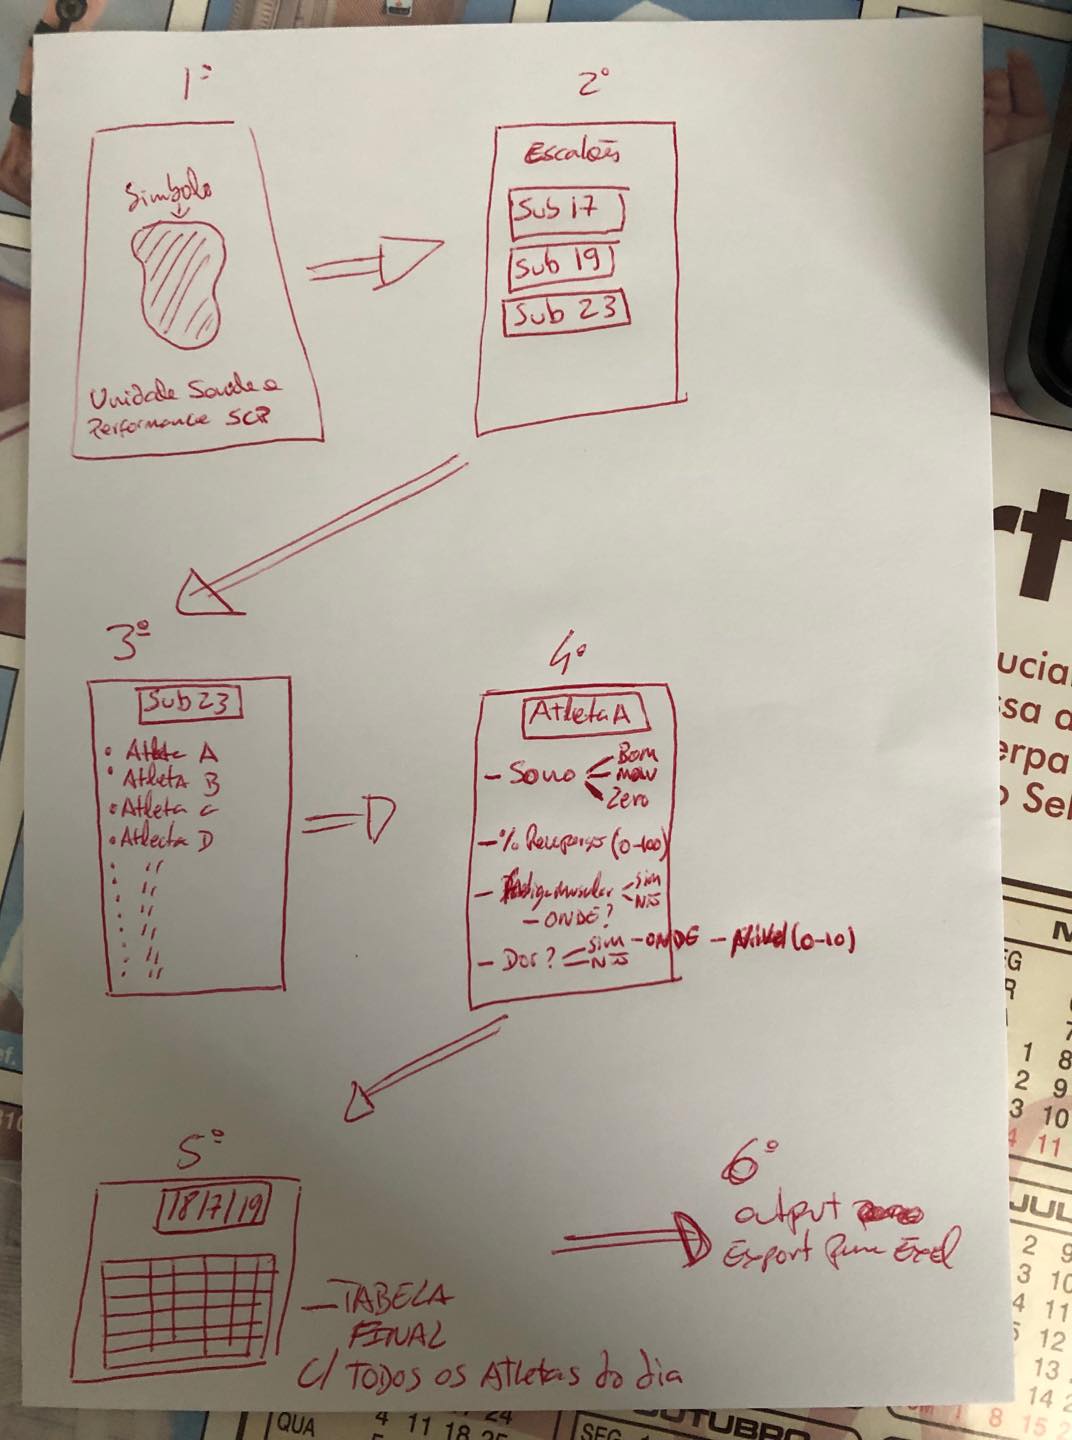 1º
Simbolo
Unidade Saude e
Performance SCP
2º
Escalões
Sub 17
Sub 19
Sub 23
3º
Sub 23
Atleta A
Atleta B
Atleta C
Atlecta D
"
"
"
"
"
"
4º
Atleta A
- Sono
Bom
mau
Zero
- % Recuperaçao (0-100)
- Fadiga muscular
sim
Não
- ONDE?
- Dor?
sim - ONDE - Nivel (0-10)
Não
5º
18/7/19
- TABELA
FINAL
C/ TODOS OS Atletas do dia
6º
output
Export para Excel
rt
ucia
ssa d
erpa
o Sel
M
EG
R
1 8
2 9
3 10
4 11
JUL
2 9
3 10
4 11
5 12
13
14
8 15
QUA
4 11 18 25
17 24
OUTUBRO
SEG